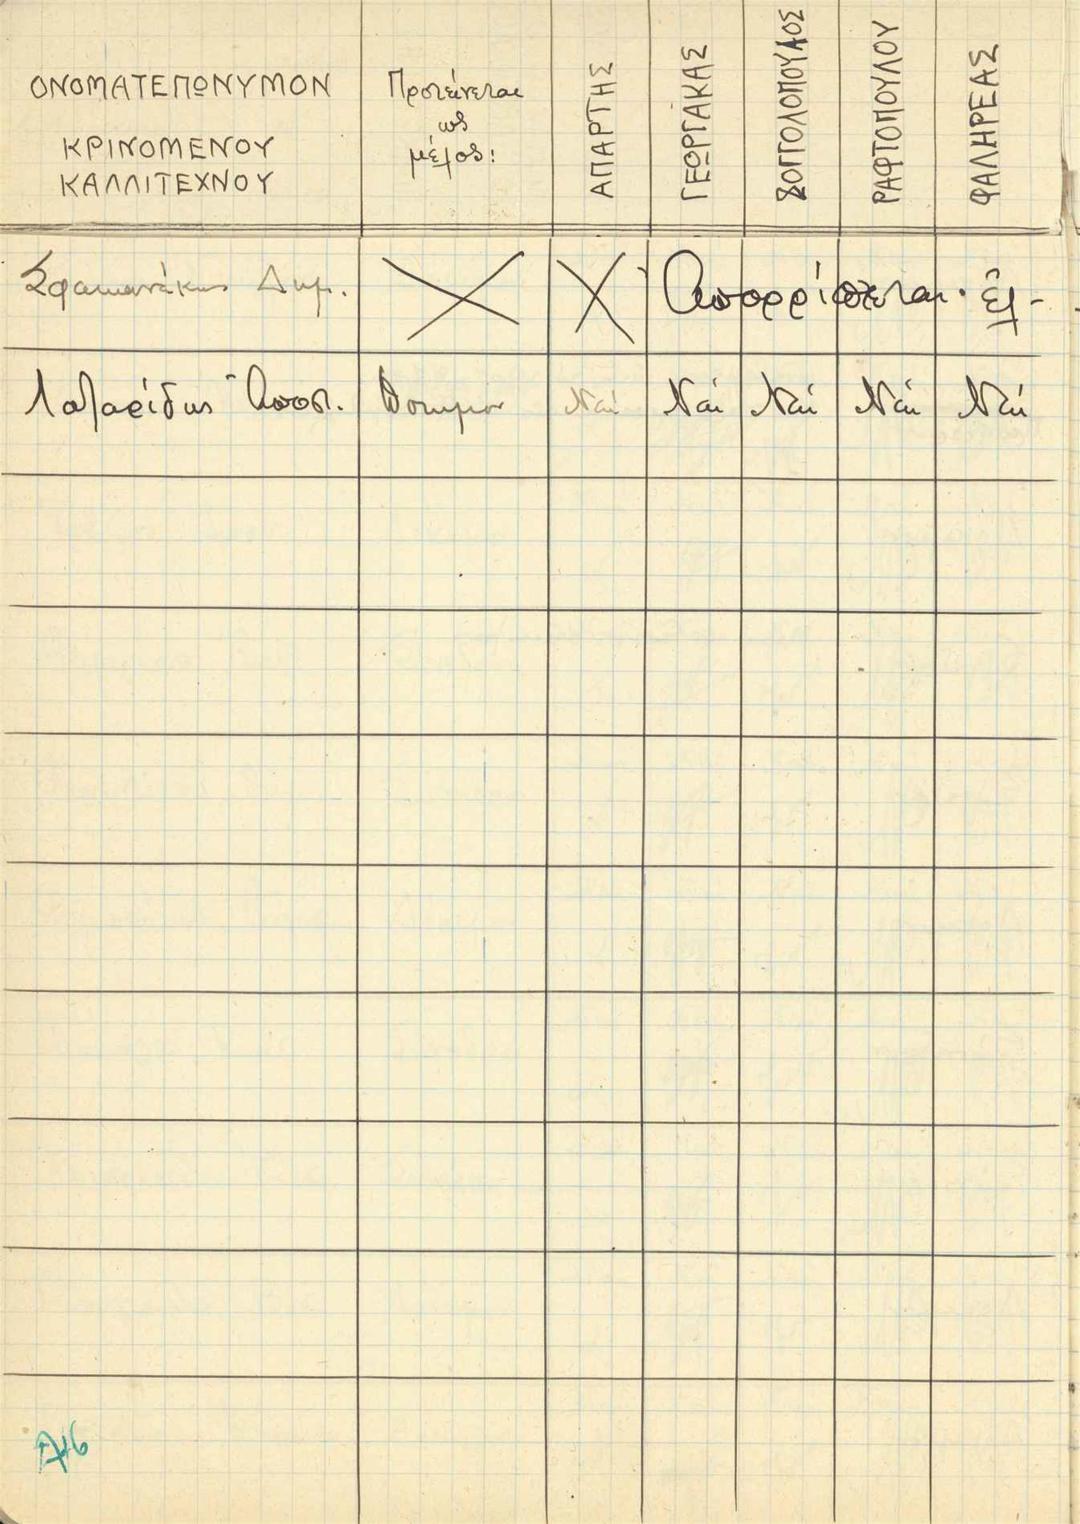 ΟΝΟΜΑΤΕΠΩΝΥΜΟΝ
ΚΡΙΝΟΜΕΝΟΥ
ΚΑΛΛΙΤΕΧΝΟΥ
Προτείνεται
ως
μέλος:
ΑΠΑΡΤΗΣ
ΓΕΩΡΓΑΚΑΣ
ΖΟΓΓΟΛΟΠΟΥΛΟΣ
ΡΑΦΤΟΠΟΥΛΟΥ
ΦΑΛΗΡΕΑΣ
Σφακιανάκης Δημ. Χ Χ Απορρίπτεται.
Λαζαρίδης Αποστ. Δόκιμον Ναί Ναί Ναί Ναί Ναί